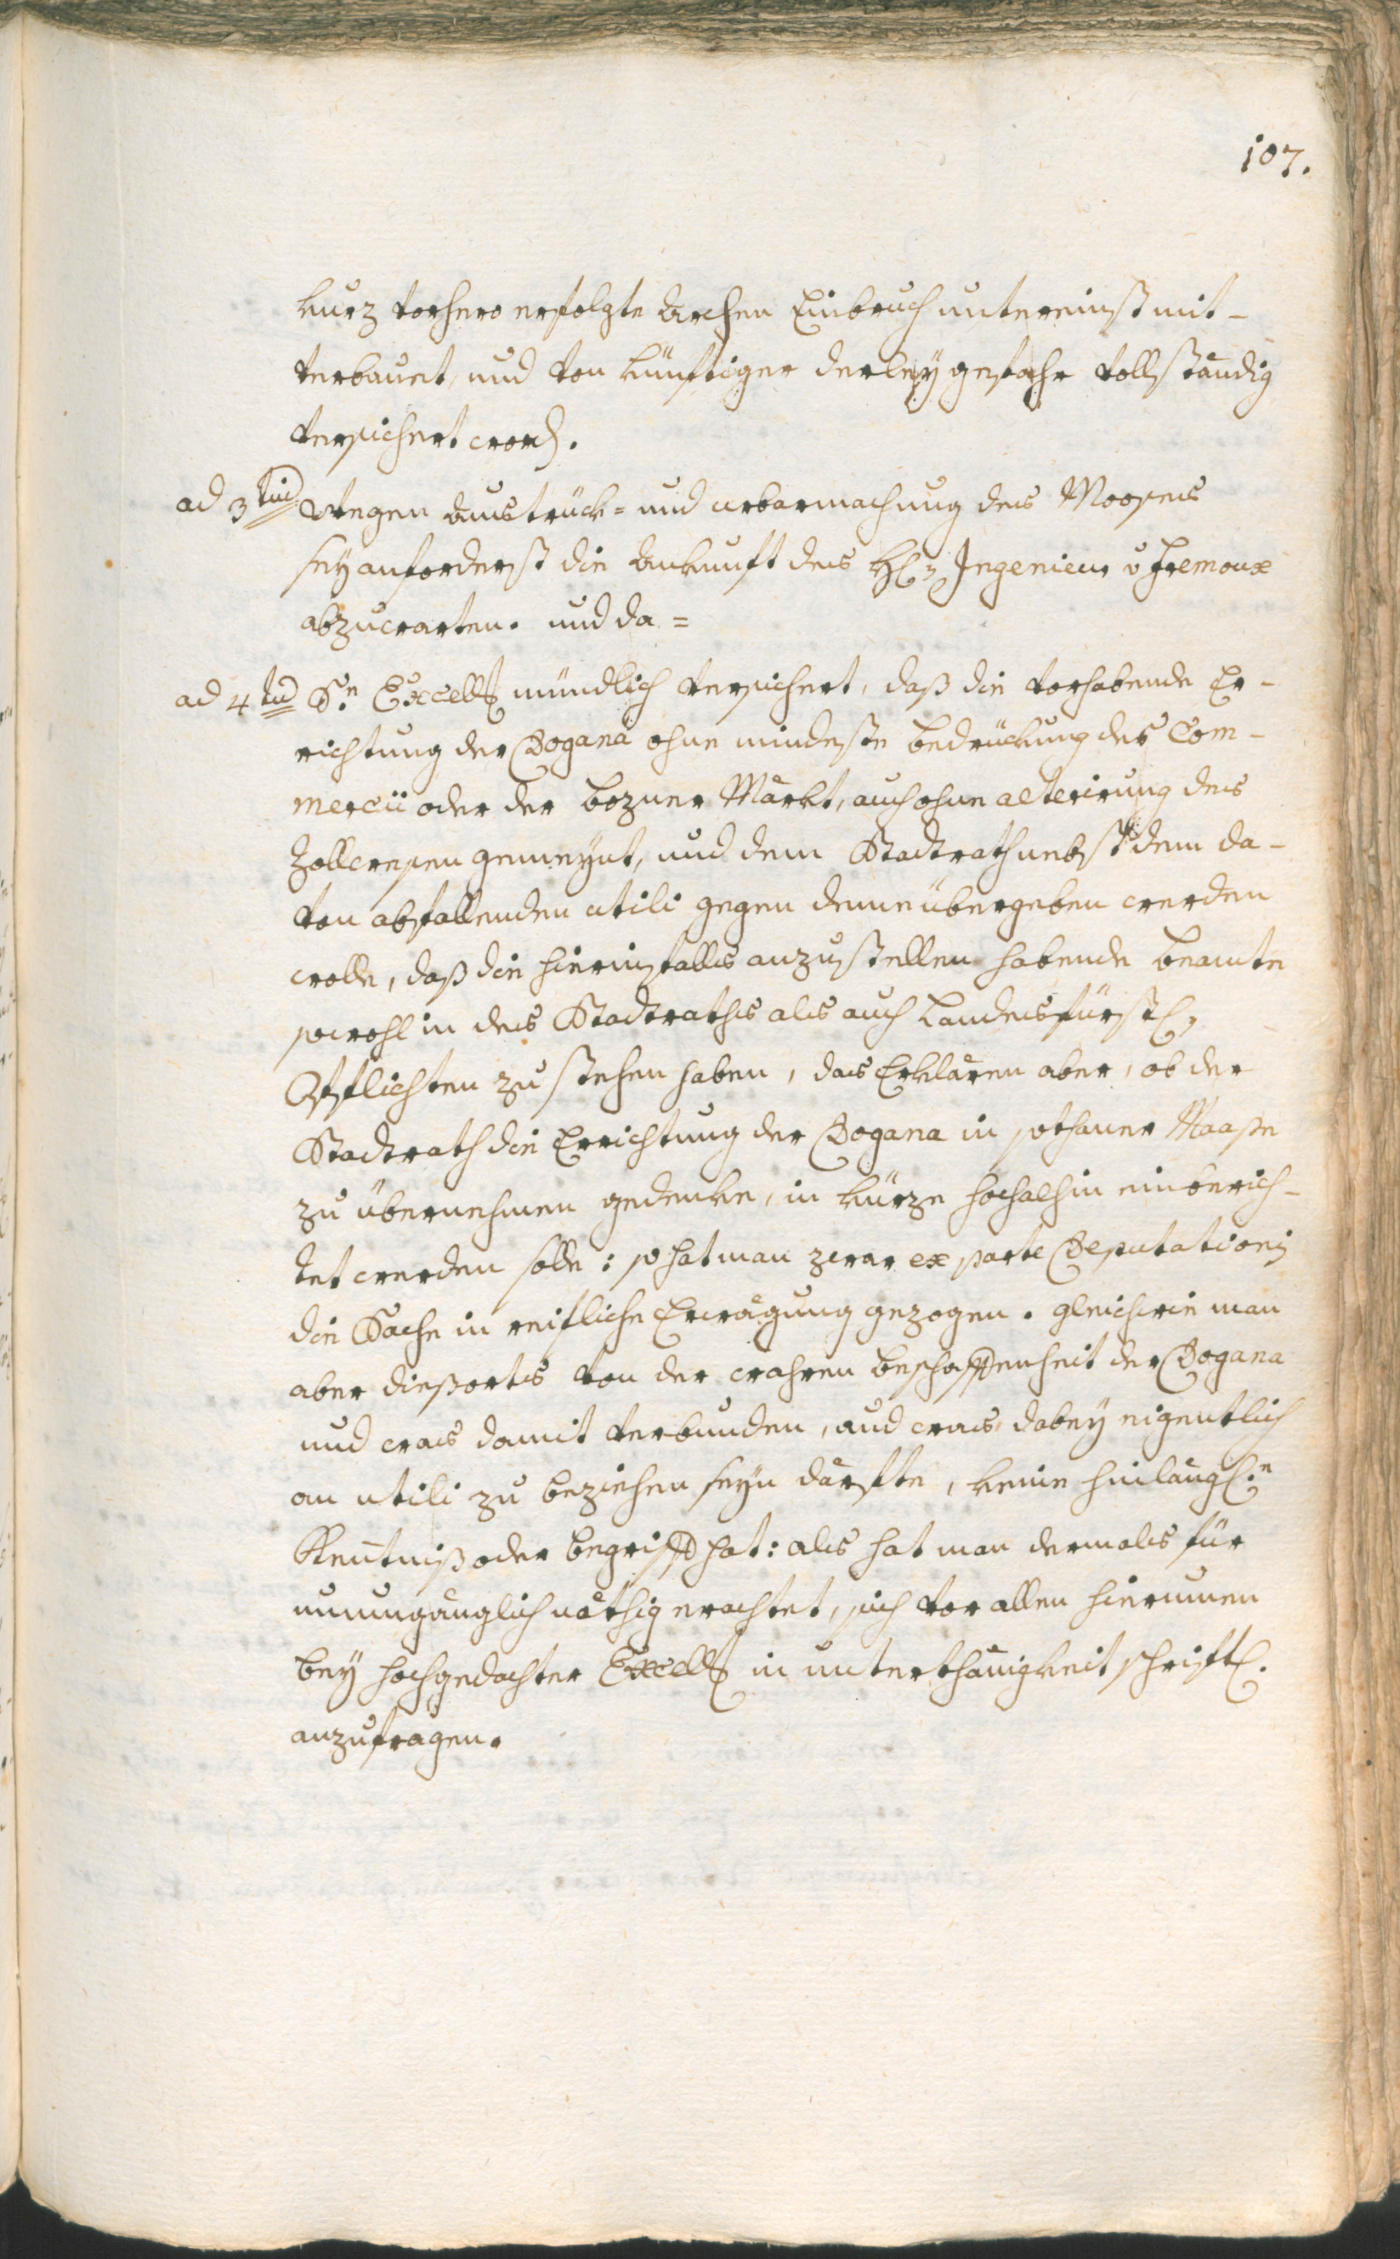 107.
kurz vorhero erfolgte Archen Einbruch untereinst mit-
verbauet, und von künftiger derley gefahr vollständig
versichert word.
ad 3tiũ Wegen Austrück= und urbarmachung des Mooses
sey anforderst die Ankunft des H: Ingenieur v Fremoux
abzuwarten. und da=
ad 4tũ Se Excell mündlich versichert, daß die vorhabende Er-
richtung der Dogana ohne mindeste bedrückung des Com-
mercii oder der bozner Märkt, auch ohne alterirung des
Zollwesen gemeynt, und dem Stadtrath nebst dem da-
von abfallenden utili gegen deme übergeben werden
wolle, daß die hierinfalls anzustellen habende beamte
sowohl in des Stadtraths als auch Landesfürstl:
Pflichten zu stehen haben, das Erklären aber, ob der
Stadtrath die Errichtung der Dogana in sothaner Maaße
zu übernehmen gedenke, in kürze hochalhin einberich-
tet werden solle: so hat man zwar ex parte Deputationis
die Sache in reifliche Erwägung gezogen. gleichwie man
aber dießorts von der wahren beschaffenheit der Dogana
und was damit verbunden, und was dabey eigentlich
an utili zu beziehen seyn därfte, keine hinlängl:e
Kentniß oder begriff hat: als hat man dermals für
unumgänglich nöthig erachtet, sich vor allen hierinnen
bey hochgedachter Excell in unterthänigkeit schriftl.
anzufragen.